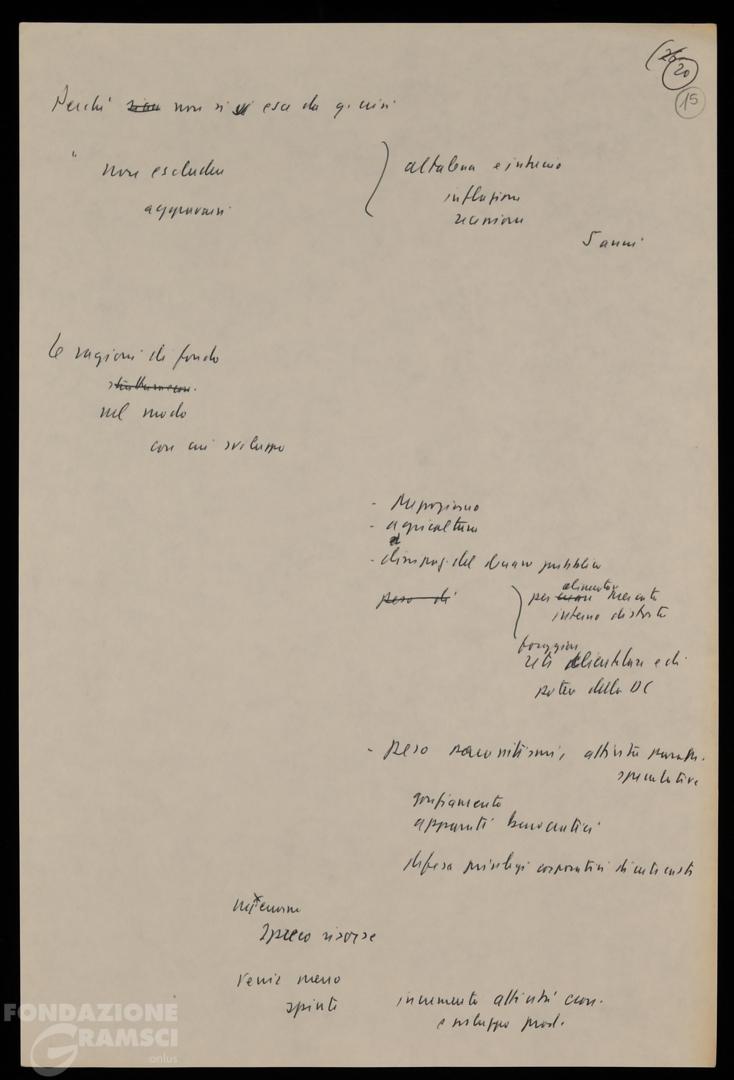 20
15
Perché non si esce da q. crisi
" non escludere
aggravarsi
altalena e intreccio
inflazione
recessione
5 anni
le ragioni di fondo
nel modo
con cui sviluppo
- Mezzogiorno
- agricoltura
- del denaro pubblico
peso di
alimentare
per mercato
interno distorto
foraggiare
reti clientelari e di
potere della DC
- peso parassitismi, attività
speculative
gonfiamento
apparati burocratici
difesa privilegi corporativi di
enorme
spreco risorse
venir meno
spinte
incremento attività
e sviluppo prod.
FONDAZIONE
GRAMSCI
onlus